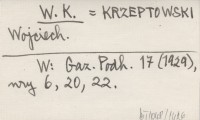 W. K. = KRZEPTOWSKI
Wojciech.
W: Gaz. Podh. 17 (1929),
nry 6, 20, 22.